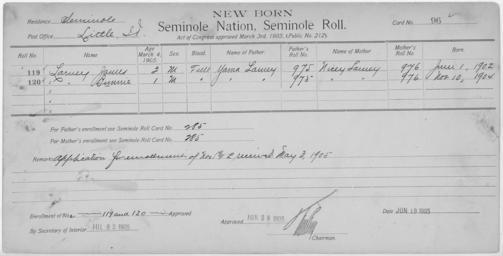 NEW BORN
Residence Seminole
Seminole Nation, Seminole Roll.
Card No. 96
Post Office Little I.T.
Act of Congress approved March 3rd, 1905, (Public No. 212).
Roll No. Name Age March 4, 1905. Sex. Blood. Name of Father. Father's Roll No. Name of Mother Mother's Roll No. Born.
119 Larney, 2 M Full Yama Larney 975 Larney 976 June 1, 1902
120 " 1 M " " " 975 " " 976 Nov 10, 1904
For Father's enrollment see Seminole Roll Card No. 285
For Mother's enrollment see Seminole Roll Card No. 285
Remarks Application for enrollment of Nos 1 & 2 received May 3, 1905
Enrollment of Nos 119 and 120 Approved
By Secretary of Interior 1905
Approved 1905
Chairman.
Date JUN 1905